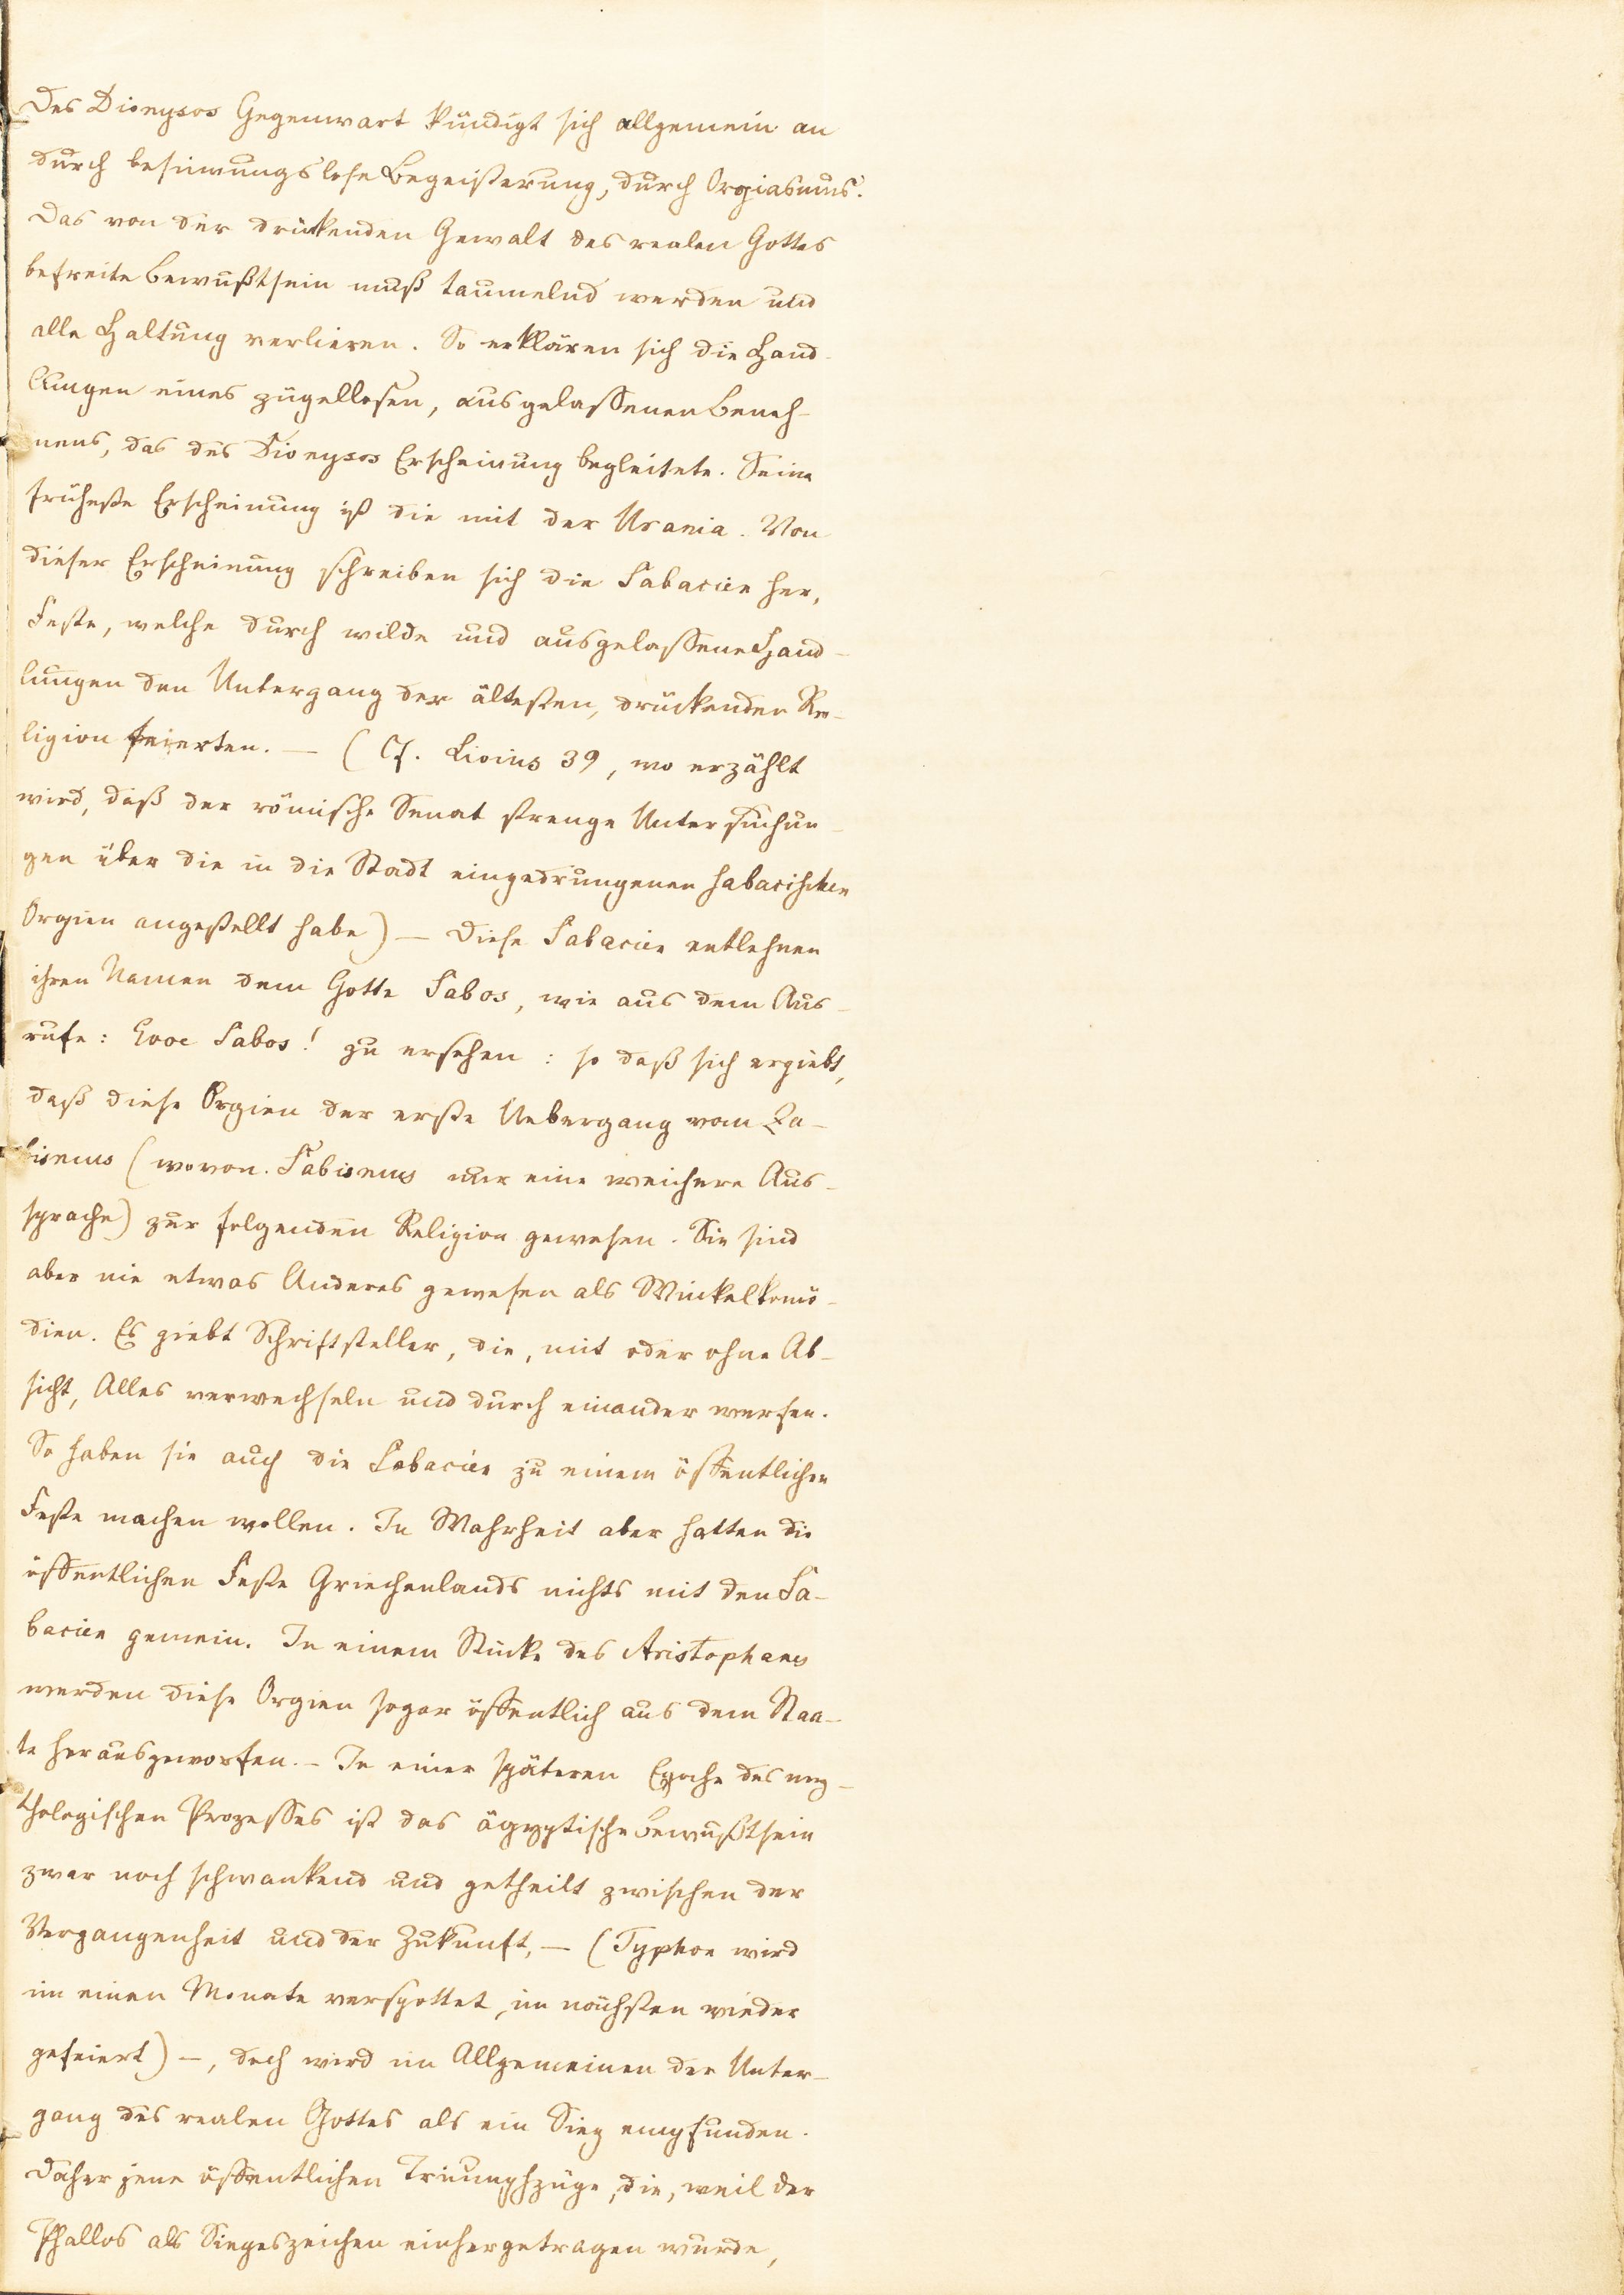 Des Dionysos Gegenwart kündigt sich allgemein an
durch besinnungslose Begeisterung, durch Orgiasmus.
Das von der drückenden Gewalt des realen Gottes
befreite Bewußtsein muß taumelnd werden und
alle Haltung verlieren. So erklären sich die Hand-
lungen eines zügellosen, ausgelassenen Beneh-
mens, das des Dionysos Erscheinung begleitete. Seine
früheste Erscheinung ist die mit der Urania. Von
dieser Erscheinung schreiben sich die Sabacien her,
Feste, welche durch wilde und ausgelassene Hand-
lungen den Untergang der ältesten, drückenden Re-
ligion feierten. — (Cf. Livius 39, wo erzählt
wird, daß der römische Senat strenge Untersuchun-
gen über die in die Stadt eingedrungenen sabacischen
Orgien angestellt habe) — Diese Sabacien entlehnen
ihren Namen dem Gotte Sabos, wie aus dem Aus-
rufe: Evoe Sabos! zu ersehen: so daß sich ergiebt,
daß diese Orgien der erste Uebergang vom Za-
bismus (wovon Sabismus nur eine weichere Aus-
sprache) zur folgenden Religion gewesen. Sie sind
aber nie etwas Anderes gewesen als Winkelkomö-
dien. Es giebt Schriftsteller, die, mit oder ohne Ab-
sicht, Alles verwechseln und durch einander werfen.
So haben sie auch die Sabacien zu einem öffentlichen
Feste machen wollen. In Wahrheit aber hatten die
öffentlichen Feste Griechenlands nichts mit den Sa-
bacien gemein. In einem Stücke des Aristophanes
werden diese Orgien sogar öffentlich aus dem Staa-
te herausgeworfen. – In einer späteren Epoche des my-
thologischen Prozesses ist das ägyptische Bewußtsein
zwar noch schwankend und getheilt zwischen der
Vergangenheit und der Zukunft, — (Typhon wird
im einen Monate verspottet, im nächsten wieder
gefeiert) —, doch wird im Allgemeinen der Unter-
gang des realen Gottes als ein Sieg empfunden.
Daher jene öffentlichen Triumphzüge, die, weil der
Phallos als Siegeszeichen einhergetragen wurde,